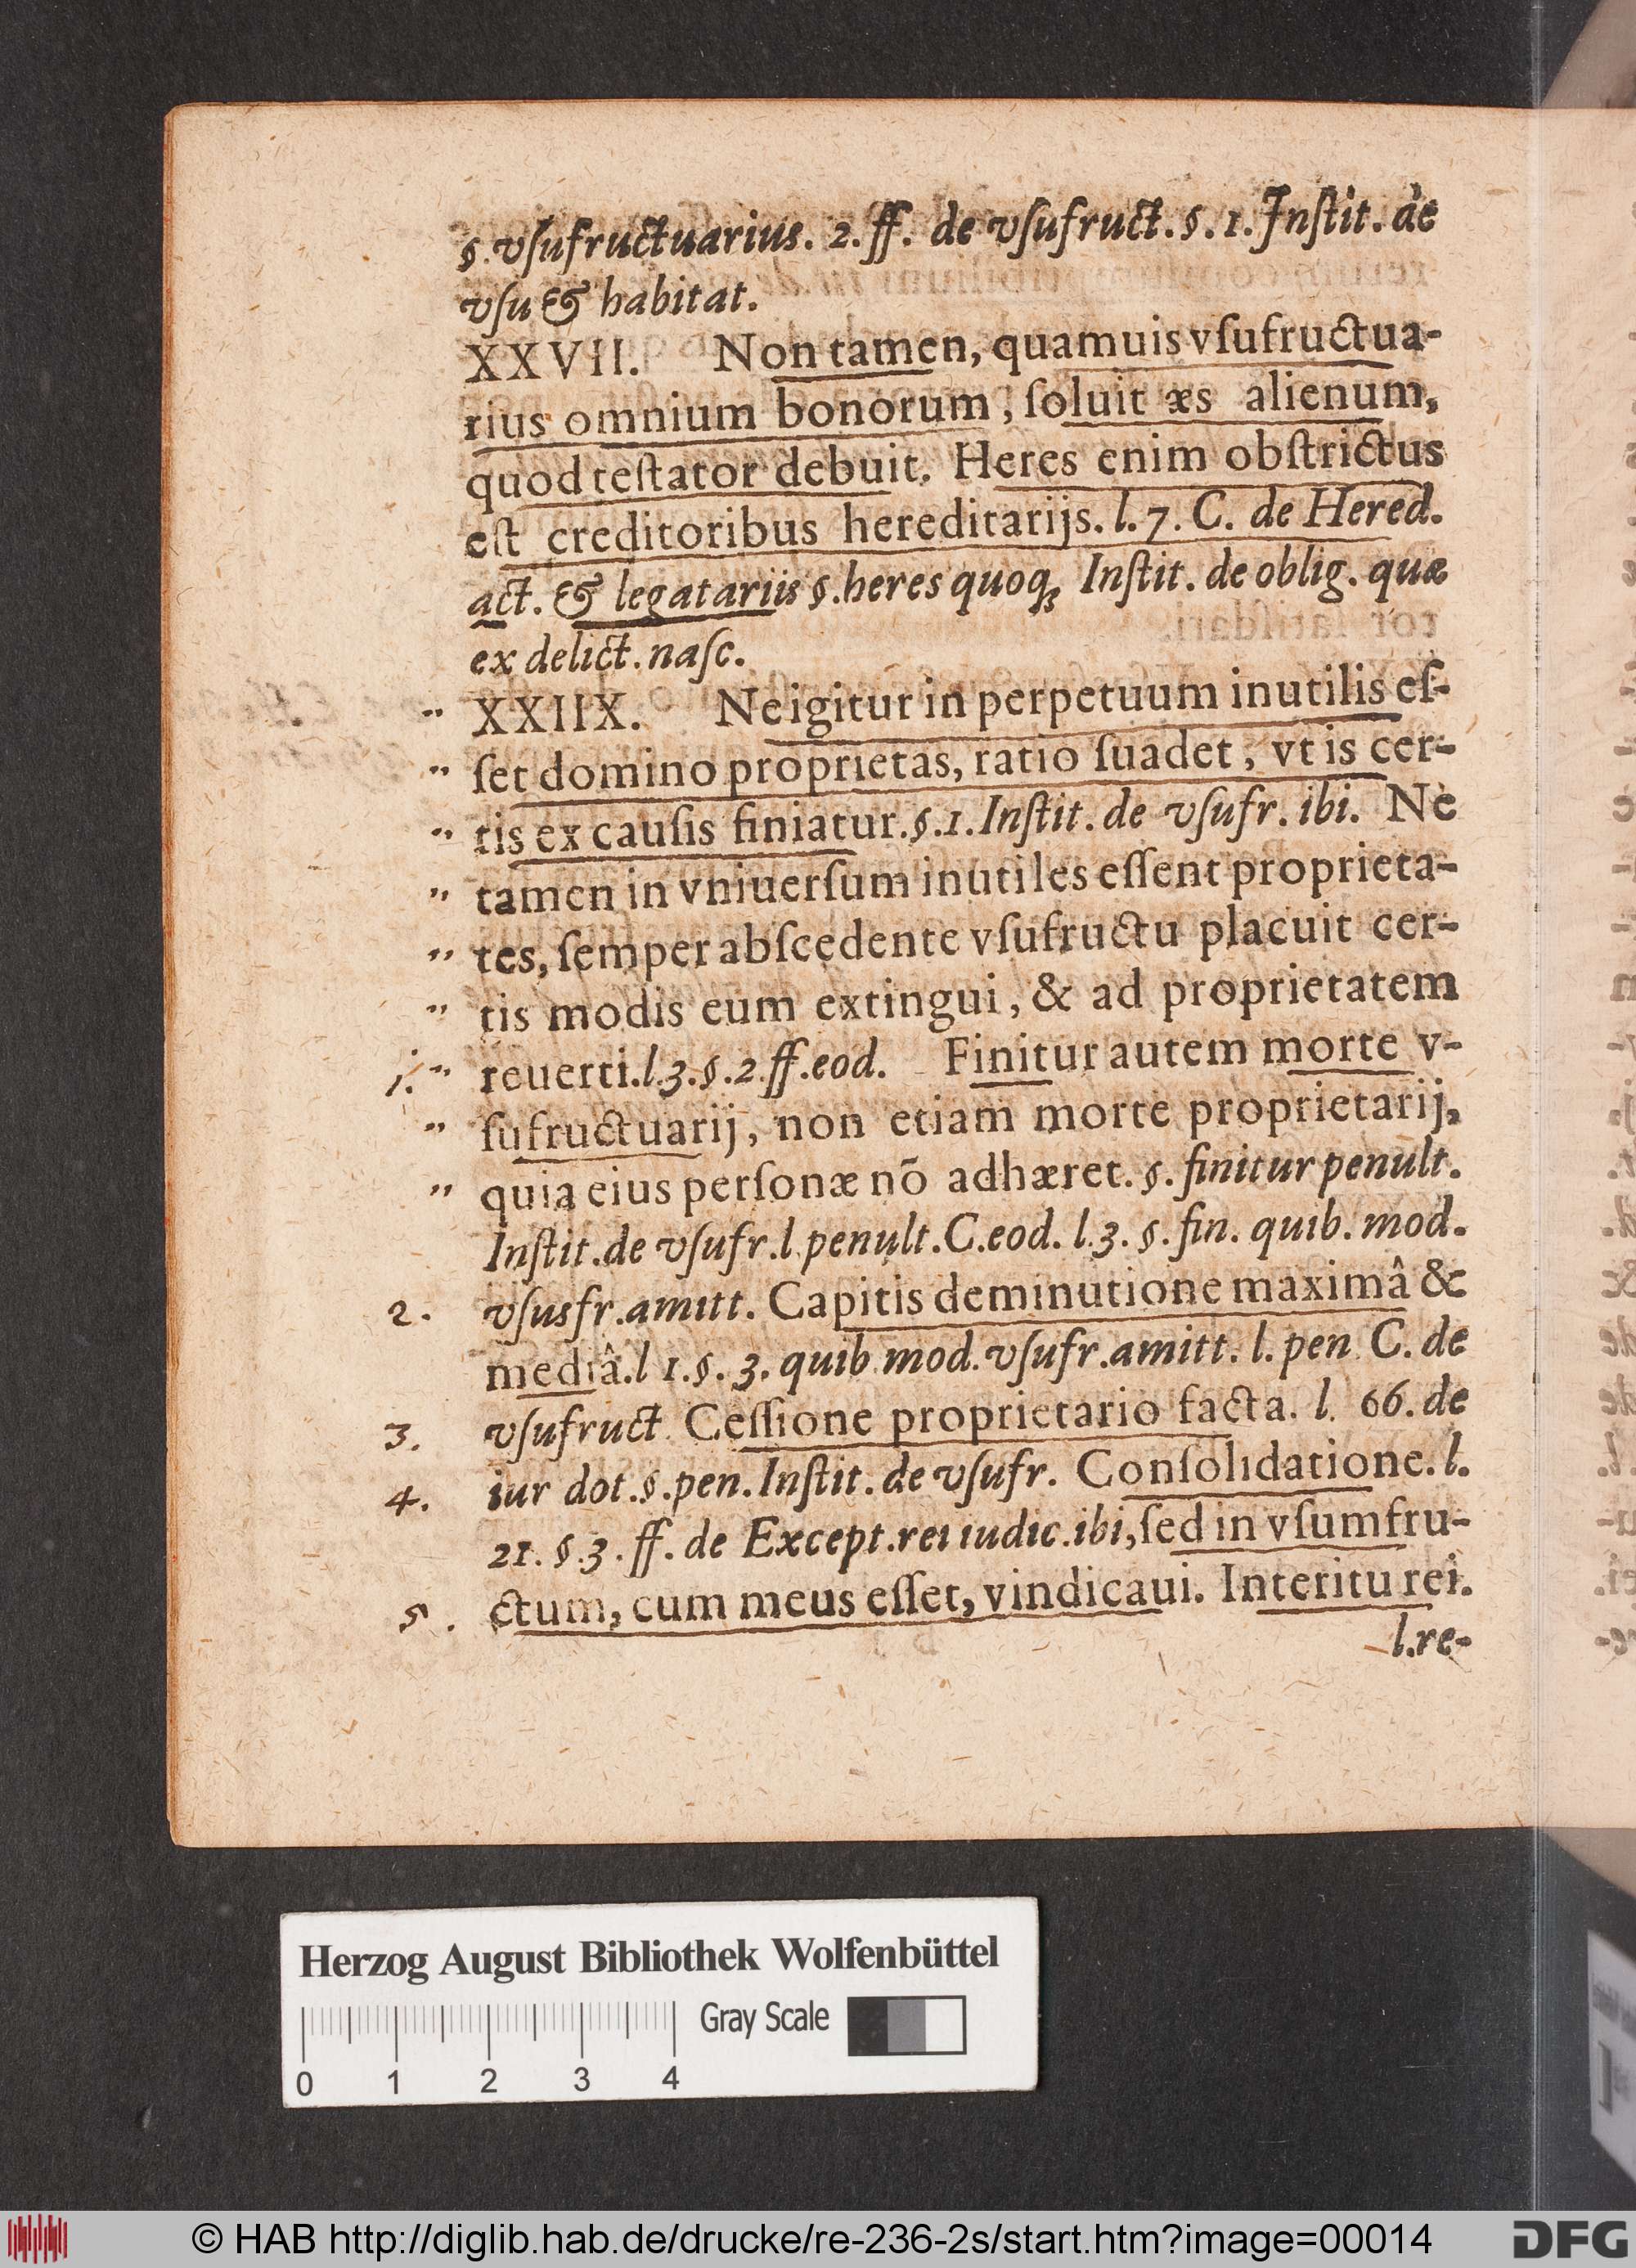 §. vſufructuarius. 2. ff. de vſufruct. §. 1. Inſtit. de
vſu & habitat.
XXVII. Non tamen, quamuis vſufructua-
rius omnium bonorum, ſoluit æs alienum,
quod teſtator debuit. Heres enim obſtrictus
eſt creditoribus hereditarijs. l. 7. C. de Hered.
act. & legatariis §. heres quoq; Inſtit. de oblig. quæ
ex delict. naſc.
" XXIIX. Ne igitur in perpetuum inutilis eſ-
" ſet domino proprietas, ratio ſuadet, vt is cer-
" tis ex cauſis finiatur. §. 1. Inſtit. de vſufr. ibi. Ne
" tamen in vniuerſum inutiles eſſent proprieta-
" tes, ſemper abſcedente vſufructu placuit cer-
" tis modis eum extingui, & ad proprietatem
1. " reuerti. l. 3. §. 2. ff. eod. Finitur autem morte v-
" ſufructuarij, non etiam morte proprietarij,
" quia eius perſonæ nõ adhæret. §. finitur penult.
Inſtit. de vſufr. l. penult. C. eod. l. 3. §. fin. quib. mod.
2. vſusfr. amitt. Capitis deminutione maximâ &
mediâ. l 1. §. 3. quib mod. vſufr. amitt. l. pen C. de
3. vſufruct Ceſſione proprietario facta. l. 66. de
4. iur dot. §. pen. Inſtit. de vſufr. Conſolidatione. l.
21. §. 3. ff. de Except. rei iudic. ibi, ſed in vſumfru-
5. ctum, cum meus eſſet, vindicaui. Interitu rei.
l. re-
Herzog August Bibliothek Wolfenbüttel
Gray Scale
0 1 2 3 4
© HAB http://diglib.hab.de/drucke/re-236-2s/start.htm?image=00014
DFG